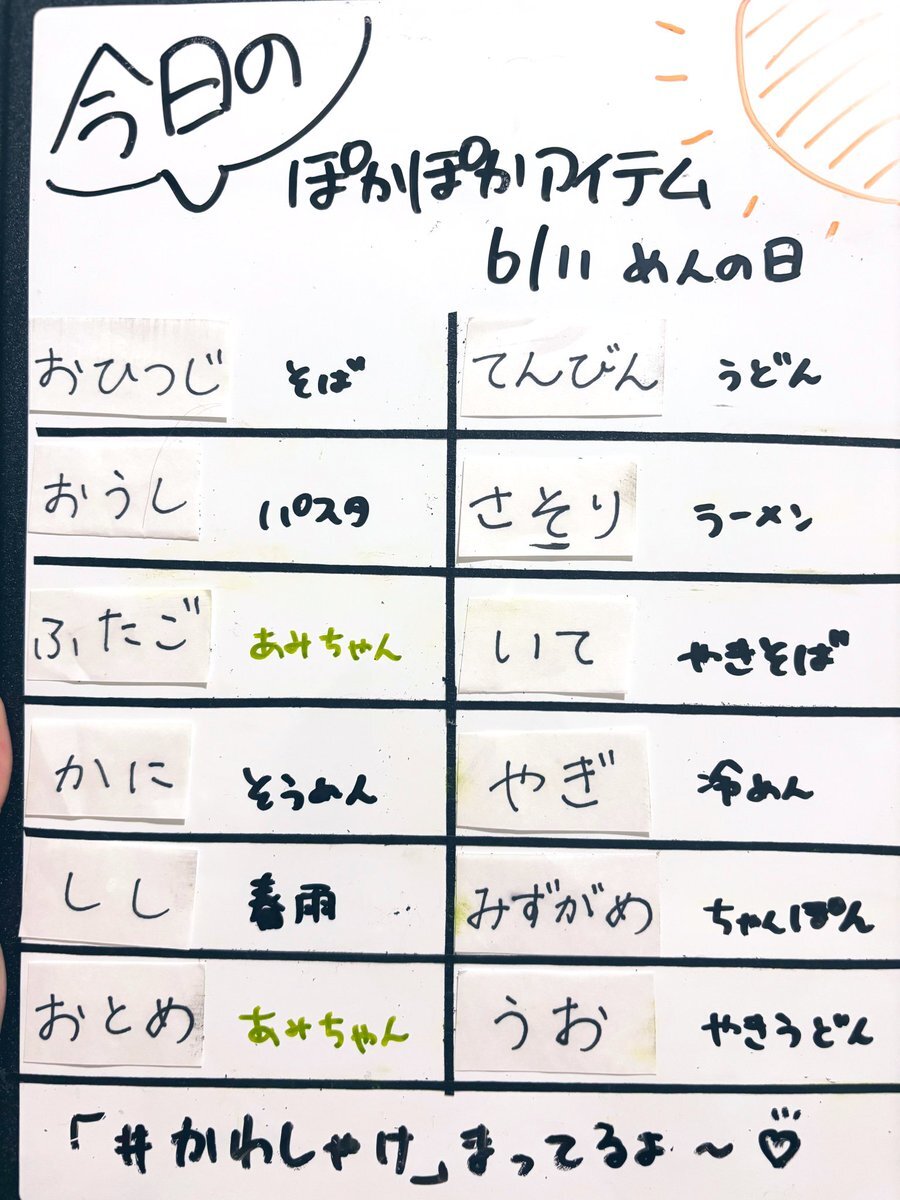 今日の
ぽかぽかアイテム
6/11 めんの日
おひつじ そば
てんびん うどん
おうし パスタ
さそり ラーメン
ふたご あみちゃん
いて やきそば
かに そうめん
やぎ 冷めん
しし 春雨
みずがめ ちゃんぽん
おとめ あみちゃん
うお やきうどん
「#かわしゃけ」まってるよ〜♡